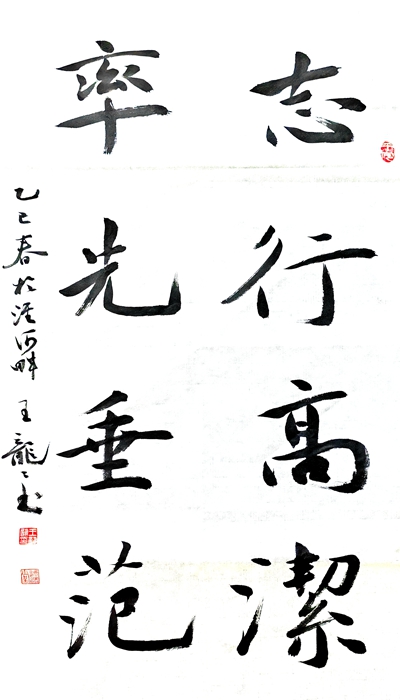 志行高潔
率先垂范
乙巳春於涇河畔 王龍